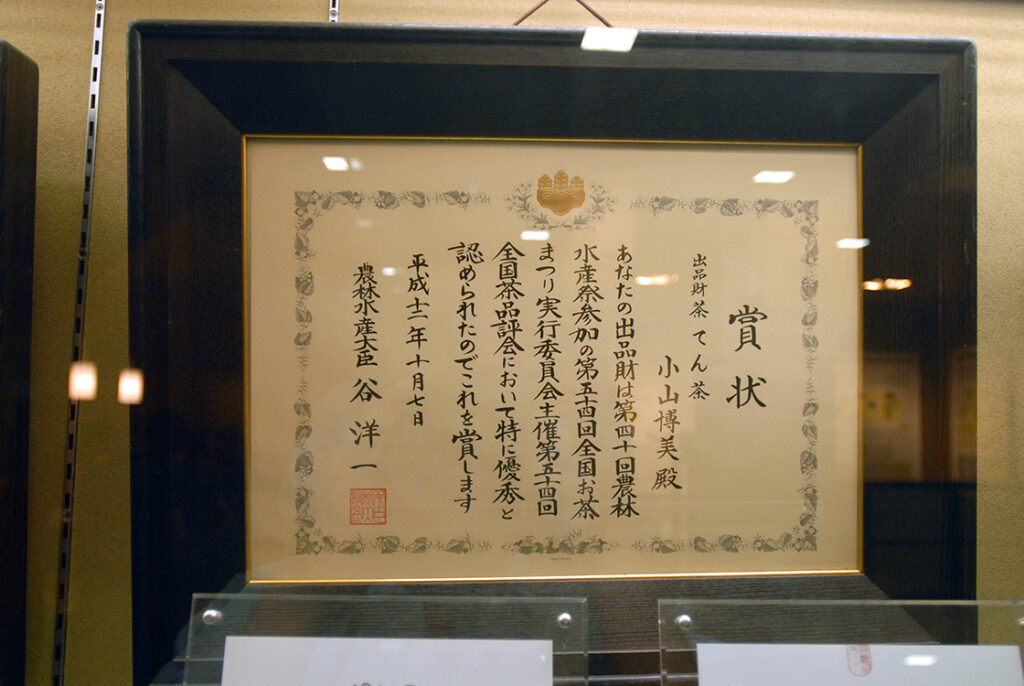 賞状
出品財 茶 てん茶
小山博美殿
あなたの出品財は第四十回農林
水産祭参加の第五十四回全国お茶
まつり実行委員会主催第五十四回
全国茶品評会において特に優秀と
認められたのでこれを賞します
平成十二年十月七日
農林水産大臣 谷洋一